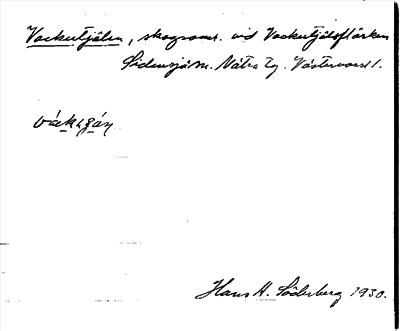 Vackertjälen, skogsomr. vid Vackertjälsflärken
Sidensjö sn. Nätra tg. Västernorrl.
Hans H. Söderberg 1930.